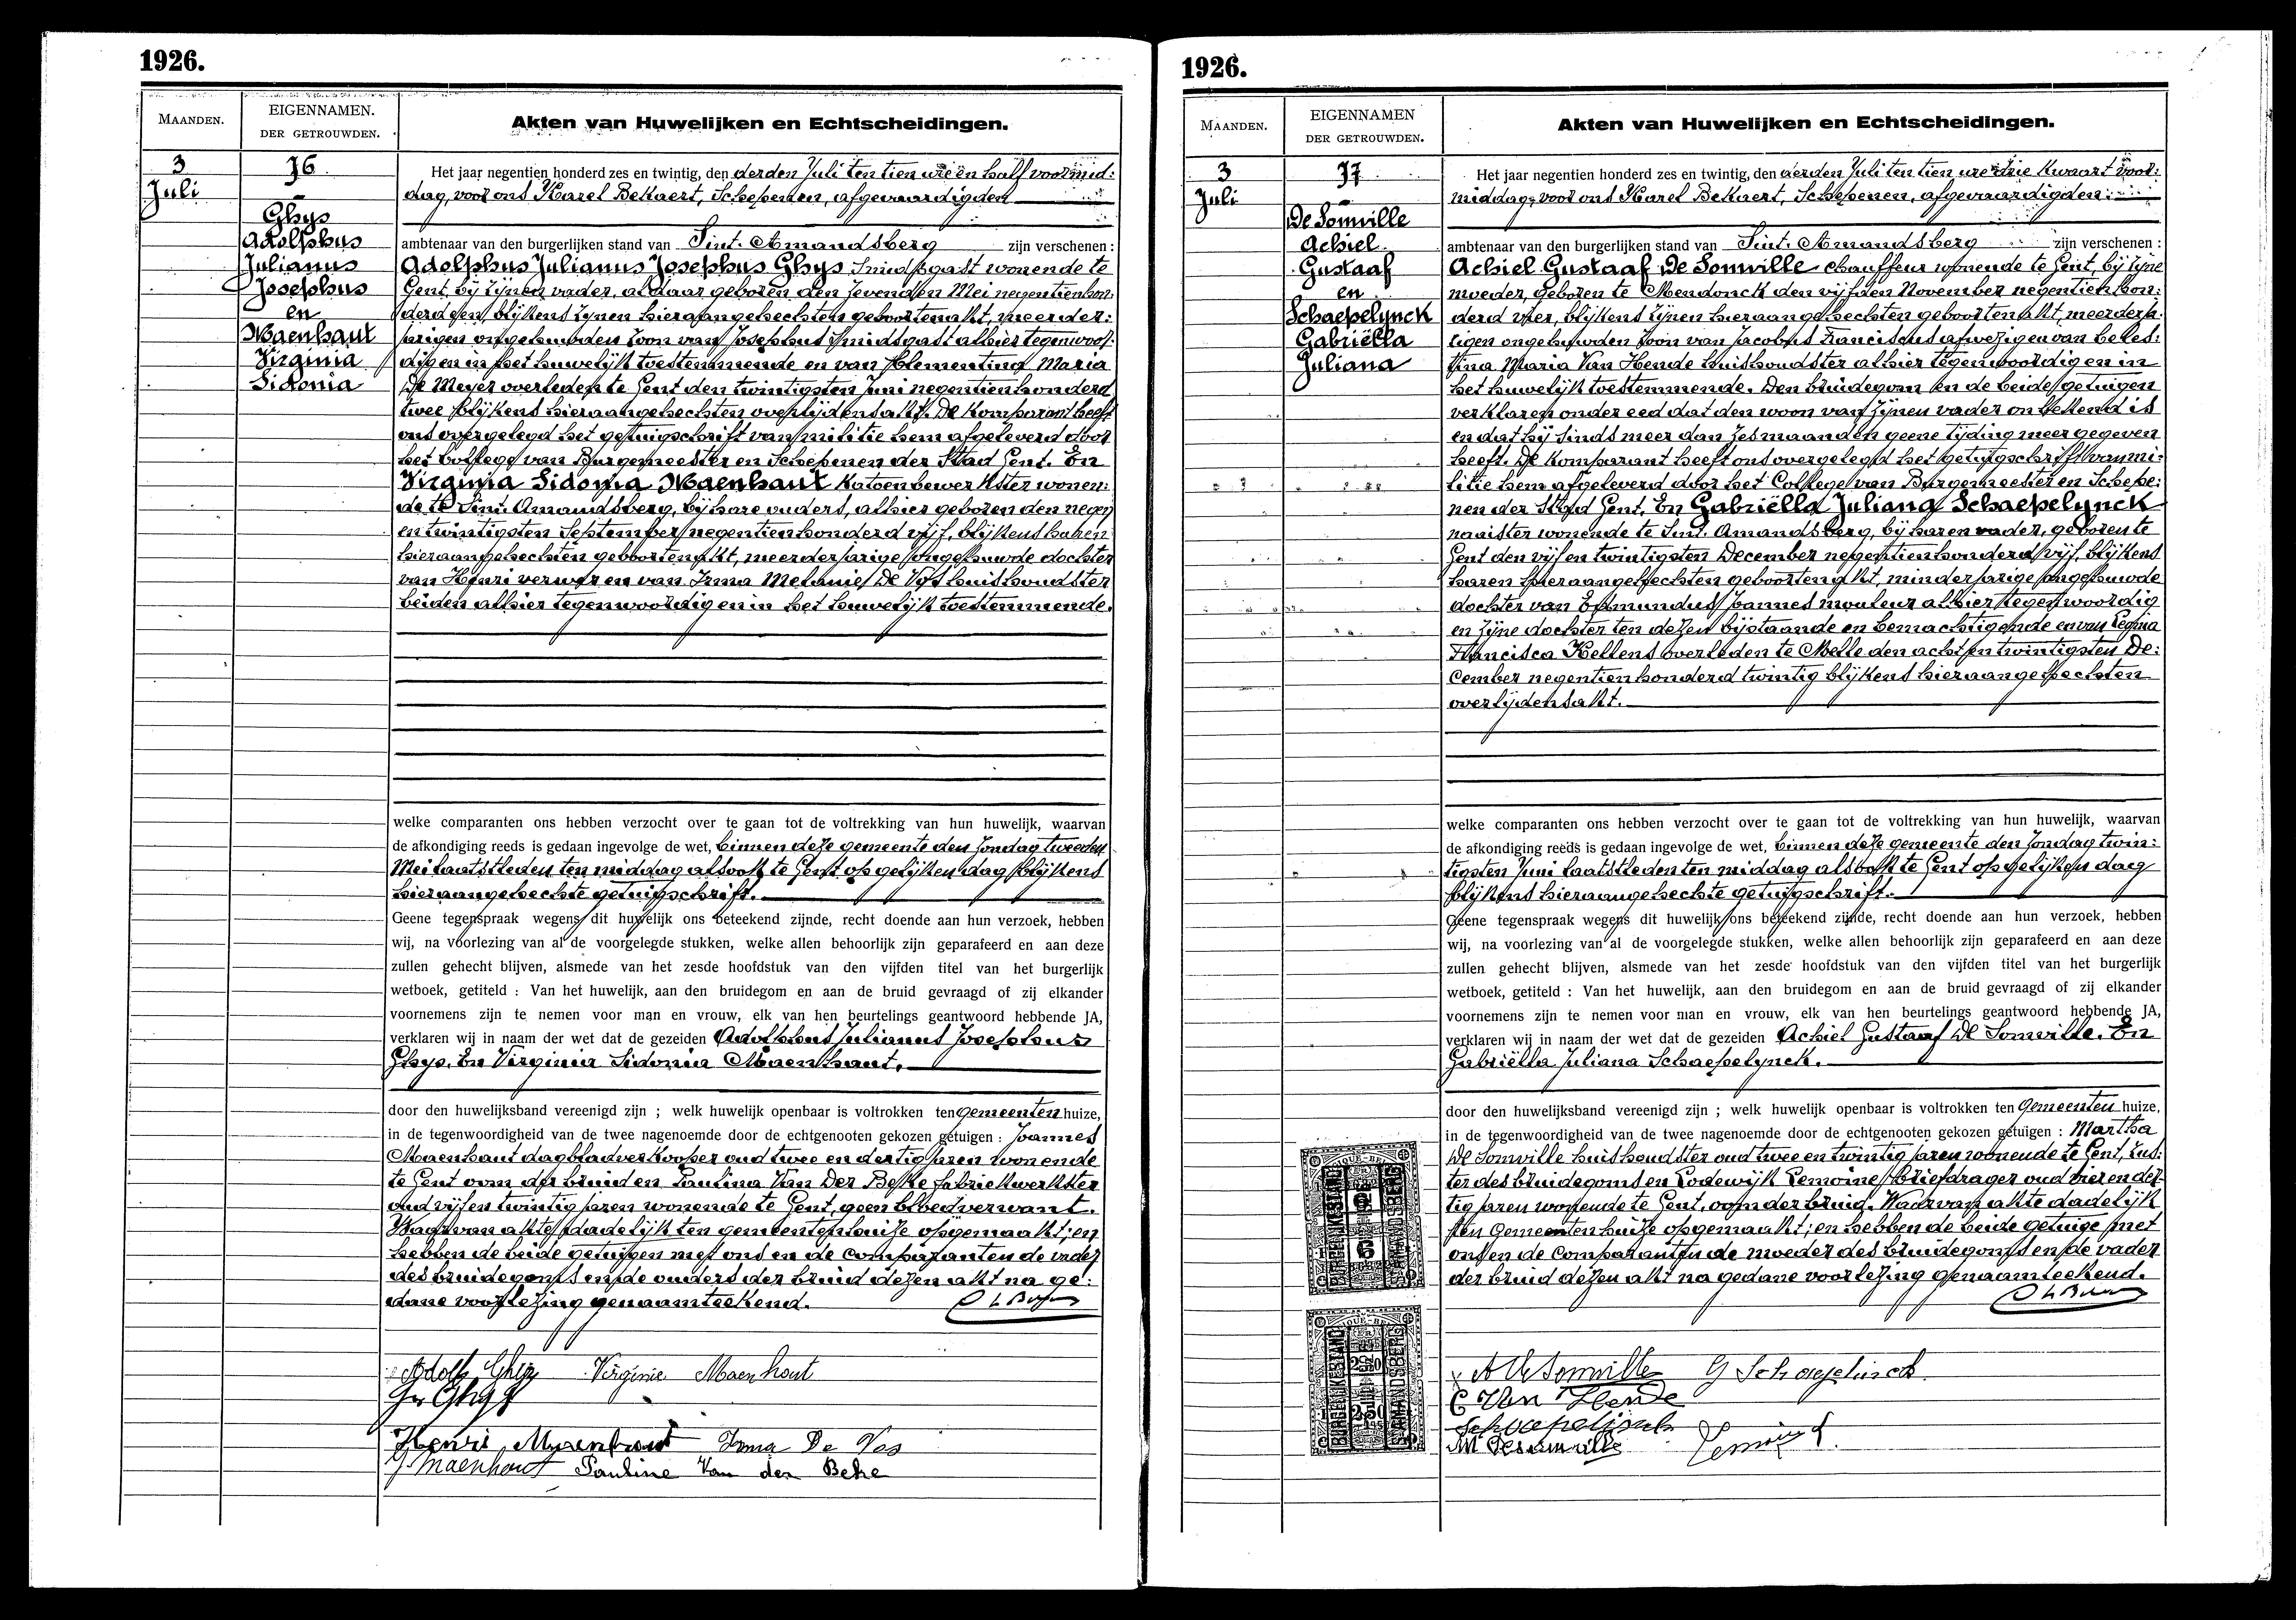 1926.
MAANDEN.
EIGENNAMEN.
DER GETROUWDEN.
Akten van Huwelijken en Echtscheidingen.
3
Juli
76
Ghys
Adolphus
Julianus
Josephus
en
Maenhaut
Virginia
Sidonia
Het jaar negentien honderd zes en twintig, den derden Juli ten tien ure en half voormid:
dag, voor ons Karel Bekaert, Schepenen, afgevaardigden
ambtenaar van den burgerlijken stand van Sint. Amandsberg zijn verschenen :
Adolphus Julianus Josephus Ghys Smidsgast wonende te
Gent, bij zijnen vader, aldaar geboren den zevenden Mei negentienhon:
derd een, blijkens zijnen hieraangehechten geboortenakt, meerder:
jarigen ongehuwden zoon van Josephus smidsgast alhier tegenwoor:
digen in het huwelijk toestemmende en van Clementina Maria
De Meyer overleden te Gent den twintigsten Juni negentienhonderd
twee blijkens hieraangehechten overlijdensakt. De Komparant heeft
ons overgelegd het getuigschrift van militie hem afgeleverd door
het College van Burgemeester en Schepenen der Stad Gent. En
Virginia Sidonia Maenhaut Katoenbewerkster wonen:
de te Sint. Amandsberg, bij hare ouders, alhier geboren den negen
en twintigsten September negentienhonderd vijf, blijkens haren
hieraangehechten geboortenakt, meerderjarige ongehuwde dochter
van Henri verwer en van Irma Melanie De Vos huishoudster
beiden alhier tegenwoordig en in het huwelijk toestemmende.
welke comparanten ons hebben verzocht over te gaan tot de voltrekking van hun huwelijk, waarvan
de afkondiging reeds is gedaan ingevolge de wet, binnen deze gemeente den Zondag tweeden
Mei laatstleden ten middag alsook te Gent op gelijken dag blijkens
hieraangehechte getuigschrift.
Geene tegenspraak wegens dit huwelijk ons beteekend zijnde, recht doende aan hun verzoek, hebben
wij, na voorlezing van al de voorgelegde stukken, welke allen behoorlijk zijn geparafeerd en aan deze
zullen gehecht blijven, alsmede van het zesde hoofdstuk van den vijfden titel van het burgerlijk
wetboek, getiteld : Van het huwelijk, aan den bruidegom en aan de bruid gevraagd of zij elkander
voornemens zijn te nemen voor man en vrouw, elk van hen beurtelings geantwoord hebbende JA,
verklaren wij in naam der wet dat de gezeiden Adolphus Julianus Josephus
Ghys. En Virginia Sidonia Maenhaut.
door den huwelijksband vereenigd zijn ; welk huwelijk openbaar is voltrokken ten Gemeenten huize,
in de tegenwoordigheid van de twee nagenoemde door de echtgenooten gekozen getuigen : Joannes
Maenhaut dagbladverkooper oud twee en dertig jaren wonende
te Gent oom der bruid en Paulina Van Der Beke fabriekwerkster
oud vijf en twintig jaren wonende te Gent, geen bloedverwant.
Waarvan akte dadelijk ten gemeentenhuize opgemaakt; en
hebben de beide getuigen met ons en de Comparanten de vader
des bruidegoms en de ouders der bruid dezen akt na ge:
dane voorlezing genaamteekend.
Adolf Ghys Virginie Maenhout
Henri Maenhout Irma De Vos
J Maenhout Pauline Van der Beke
1926.
MAANDEN.
EIGENNAMEN
DER GETROUWDEN.
Akten van Huwelijken en Echtscheidingen.
3
Juli
77
De Somville
Achiel
Gustaaf
en
Schaepelynck
Gabriëlla
Juliana
Het jaar negentien honderd zes en twintig, den derden Juli ten tien ure drie kwaart voor:
middag, voor ons Karel Bekaert, Schepenen, afgevaardigden
ambtenaar van den burgerlijken stand van Sint. Amandsberg zijn verschenen :
Achiel Gustaaf De Somville chauffeur wonende te Gent, bij zijne
moeder, geboren te Mendonck den vijfden November negentien hon:
derd vier, blijkens zijnen hieraangehechten geboortenakt, meerderja:
rigen ongehuwden zoon van Jacobus Franciscus afwezigen van Celes:
tina Maria Van Hende huishoudster alhier tegenwoordig en in
het huwelijk toestemmende. Den bruidegom en de beide getuigen
verklaren onder eed dat den woon van zijnen vader onbekend is
en dat hij sinds meer dan zes maanden geene tijding meer gegeven
heeft. De Komparant heeft ons overgelegd het getuigschrift van mi:
litie hem afgeleverd door het College van Burgemeester en Schepe:
nen der Stad Gent. En Gabriëlla Juliana Schaepelynck
naaister wonende te Sint. Amandsberg, bij haren vader, geboren te
Gent den vijf en twintigsten December negentienhonderd vijf, blijkens
haren hieraangehechten geboortenakt, minderjarige ongehuwde
dochter van Edmundus Joannes mouleur alhier tegenwoordig
en zijne dochter ten dezen bijstaande en bemachtigende en van Regina
Francisca Kellens overleden te Melle den acht en twintigsten De:
cember negentienhonderd twintig blijkens hieraangehechten
overlijdensakt.
welke comparanten ons hebben verzocht over te gaan tot de voltrekking van hun huwelijk, waarvan
de afkondiging reeds is gedaan ingevolge de wet, binnen deze gemeente den Zondag twin:
tigsten Juni laatstleden ten middag alsook te Gent op gelijken dag
blijkens hieraangehechte getuigschrift.
Geene tegenspraak wegens dit huwelijk ons beteekend zijnde, recht doende aan hun verzoek, hebben
wij, na voorlezing van al de voorgelegde stukken, welke allen behoorlijk zijn geparafeerd en aan deze
zullen gehecht blijven, alsmede van het zesde hoofdstuk van den vijfden titel van het burgerlijk
wetboek, getiteld : Van het huwelijk, aan den bruidegom en aan de bruid gevraagd of zij elkander
voornemens zijn te nemen voor man en vrouw, elk van hen beurtelings geantwoord hebbende JA,
verklaren wij in naam der wet dat de gezeiden Achiel Gustaaf De Somville. En
Gabriëlla Juliana Schaepelynck.
door den huwelijksband vereenigd zijn ; welk huwelijk openbaar is voltrokken ten Gemeenten huize,
in de tegenwoordigheid van de twee nagenoemde door de echtgenooten gekozen getuigen : Martha
De Somville huishoudster oud twee en twintig jaren wonende te Gent, zus:
ter des bruidegoms en Lodewijk Lemoine briefdrager oud vier en der:
tig jaren wonende te Gent, oom der bruid. Waarvan akte dadelijk
ten Gemeentenhuize opgemaakt; en hebben de beide getuige met
ons en de Comparanten de moeder des bruidegoms en de vader
der bruid dezen akt na gedane voorlezing genaamteekend.
A De Somville G Schaepelinck
C Van Hende
Schaepelinck
M Desomville Lemoine